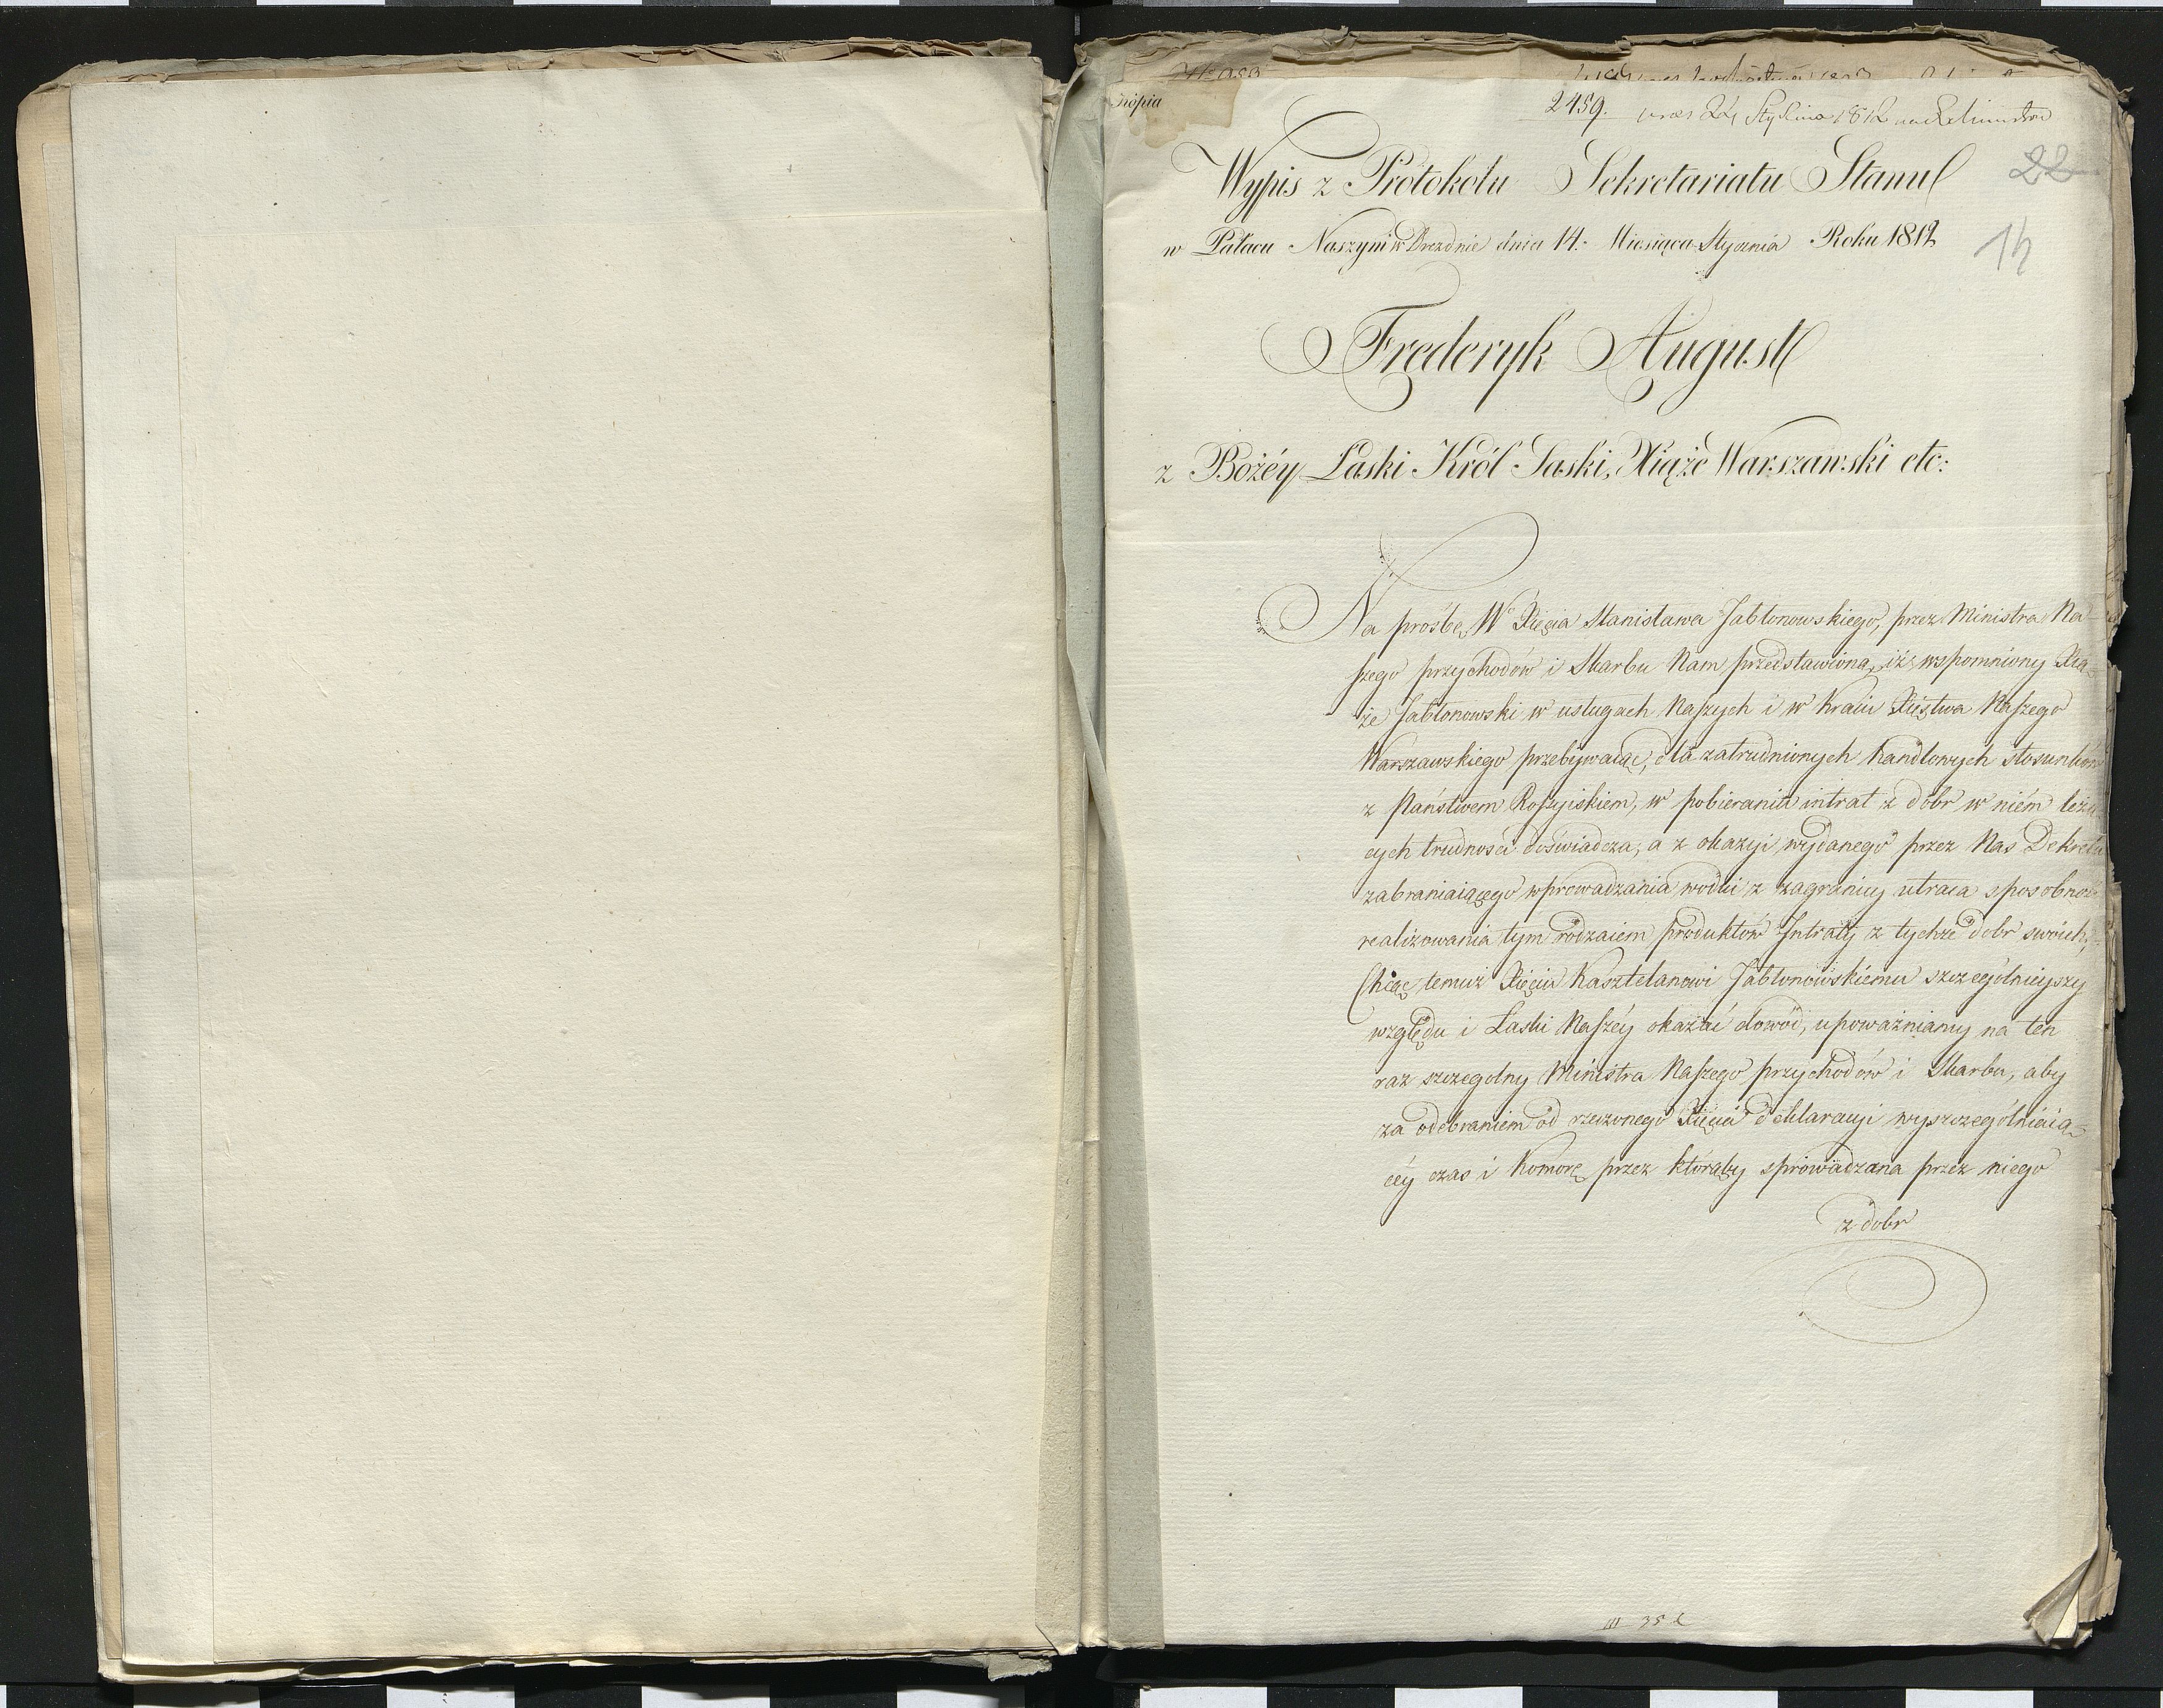 Kópia
2459. praes 24 Stycznia 1812
22
Wypis z Protokołu Sekretariatu Stanu
14
w Pałacu Naszym w Dreznie dnia 14. Miesiąca Stycznia Roku 1812
Frederyk August
z Bożéy Łaski Król Saski, Xiąże Warszawski etc:
Na prośbę W Xięcia Stanisława Jabłonowskiego, przez Ministra Na-
szego przychodów i Skarbu Nam przedstawioną, iż wspomniony Xią-
że Jabłonowski w usługach Naszych i w kraiu Xięstwa Naszego
Warszawskiego przebywaiąc, dla zatrudnionych handlowych stosunków
z Państwem Rossyiskiem, w pobieraniu intrat z dóbr w niém leżą
cych trudności doświadcza, a z okazyi wydanego przez Nas Dekretu
zabraniaiącego wprowadzania wodki z zagranicy utraca sposobność
realizowania tym rodzaiem produktów Intraty z tychże dobr swoich,
Chcąc temuż Xięciu Kasztelanowi Jabłonowskiemu szczególnieyszy
względu i Łaski Naszéy okazać dowód, upoważniamy na ten
raz szczegolny Ministra Naszego przychodów i Skarbu, aby
za odebraniem od rzeczonego Xięcia deklaracyi wyszczególniaią-
céy czas i Komorę przez którąby sprowadzana przez niego
z dobr